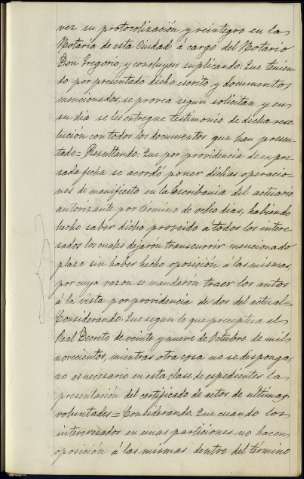 ver su protocolización y reintegro en las
Notaria de esta Ciudad á cargo del Notario
Don Gregorio, y concluyen suplicando: Que tenien
do por presentado dicho escrito y documentos
mencionados, se provea segun solicitan y en
su dia se les entregue testimonio de dicha reso
lución con todos los documentos que han presen
tado = Resultando: Que por providencia de expre
sada fecha se acordó poner dichas operacio
nes de manifiesto en la Escribania del actuario
autorizante por término de ocho dias, habiendo
hecho saber dicho proveido a todos los intere
sados los cuales dejaron transcurrir mencionado
plazo sin haber hecho oposición á las mismas,
por cuya razon se mandaron traer los autos
á la vista por providencia de dos del actual =
Considerando: Que segun lo que preceptúa el
Real Decreto de veinte y nueve de Octubre de mil
novecientos, mientras otra cosa no se disponga,
no es necesario en esta clase de expedientes la
presentación del certificado de actos de ultimas
voluntades = Considerando: Que cuando los
interesados en unas particiones no hacen
oposición á las mismas dentro del término